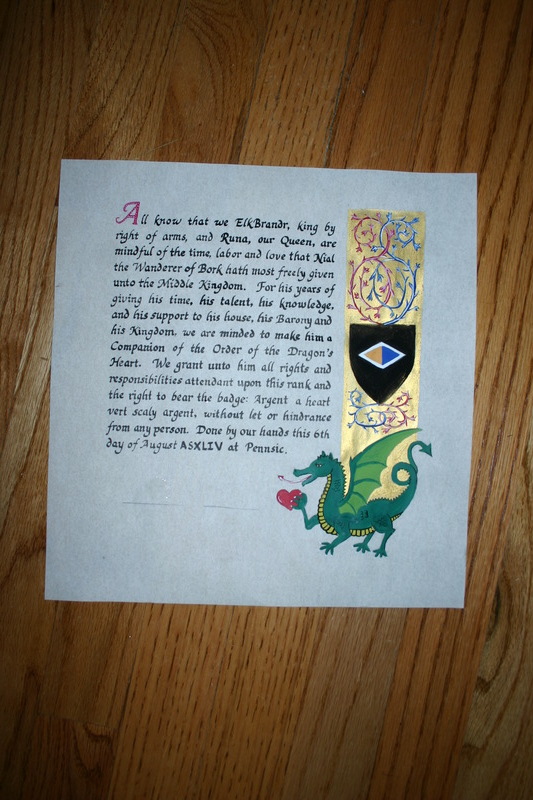 All know that we ElkBrandr, king by
right of arms, and Runa, our Queen, are
mindful of the time, labor and love that Nial
the Wanderer of Bork hath most freely given
unto the Middle Kingdom. For his years of
giving his time, his talent, his knowledge,
and his support to his house, his Barony and
his Kingdom, we are minded to make him a
Companion of the Order of the Dragon's
Heart. We grant unto him all rights and
responsibilities attendant upon this rank and
the right to bear the badge: Argent a heart
vert scaly argent, without let or hindrance
from any person. Done by our hands this 6th
day of August ASXLIV at Pennsic.